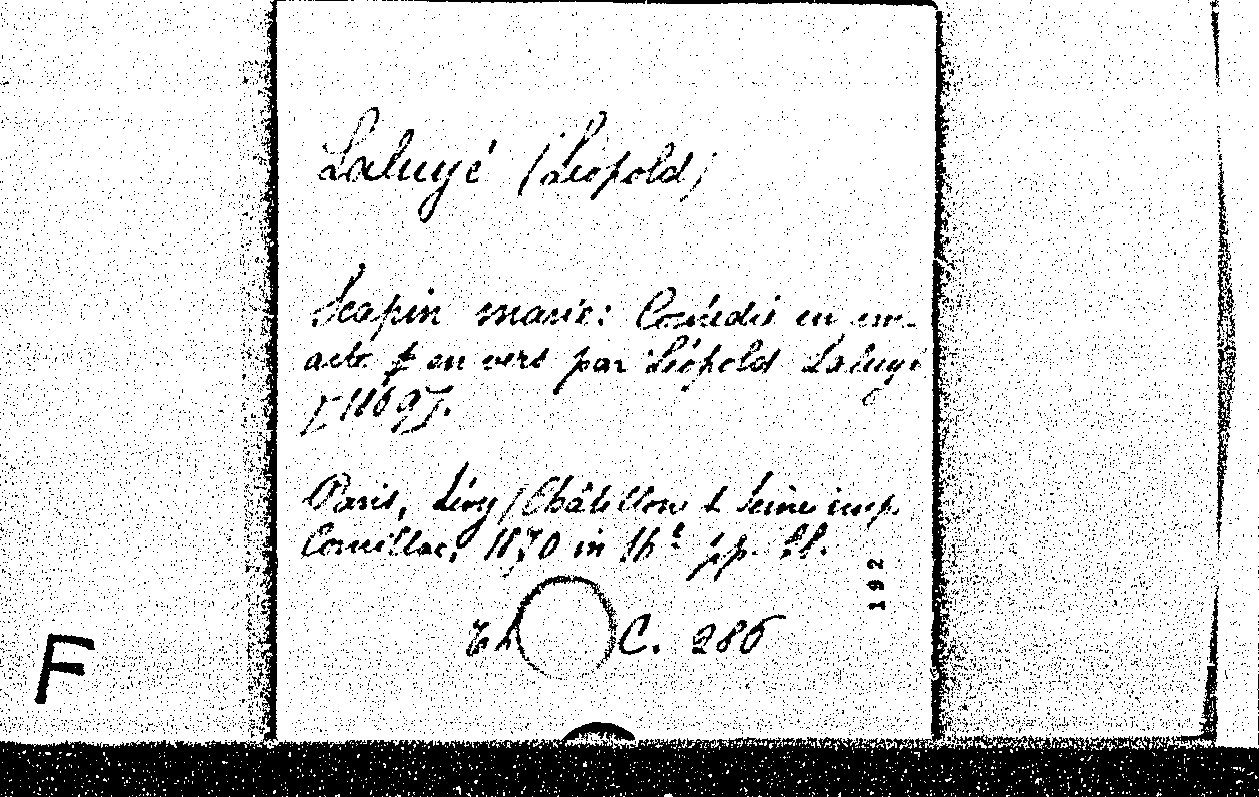 Laluyé (Léopold)
Scapin marié: Comédie en un
acte & en vers par Léopold Laluyé
[1869].
Paris, Lévy (Châtillon s Seine imp.
Cornillac, 1870 in 16º
192
Th C. 286
F